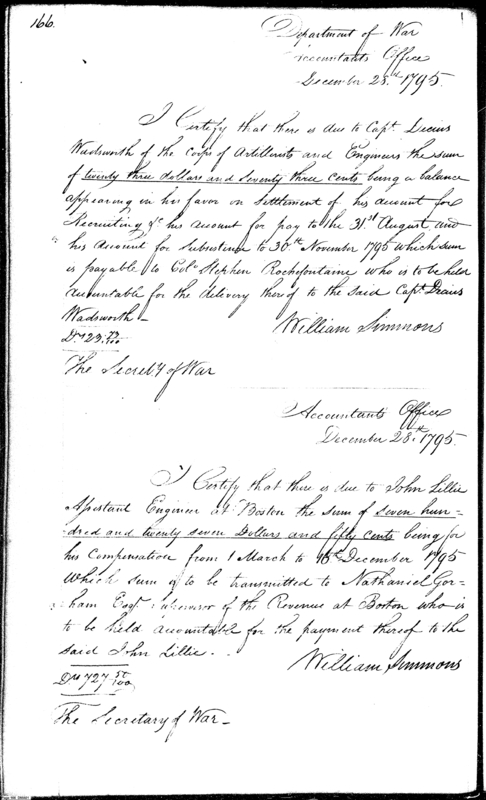 166.
Department of War
Accountants Office
December 23rd 1795.
I Certify that there is due to Capt. Decius
Wadsworth of the Corps of Artillerists and Engineers the sum
of twenty three dollars and Seventy three cents being a balance
appearing in his favor on Settlement of his account for
Recruiting &c his account for pay to the 31.st August, and
his account for Subsistence to 30th November 1795 which sum
is payable to Colo Stephen Rochefontaine who is to be held
accountable for the delivery thereof to the said Capt Decius
Wadsworth -
Ds 23.73/100
William Simmons
The Secrety of War
Accountants Office
December 28.th 1795.
I Certify that there is due to John Lillie
Assistant Engineer at Boston the Sum of Seven hun-
dred and twenty seven Dollars and fifty cents being for
his Compensation from 1 March to 16th December 1795
Which sum is to be transmitted to Nathaniel Gor-
ham Esqr Supervisor of the Revenue at Boston who is
to be held accountable for the payment thereof to the
said John Lillie.
William Simmons
Ds 727 50/100
The Secretary of War -